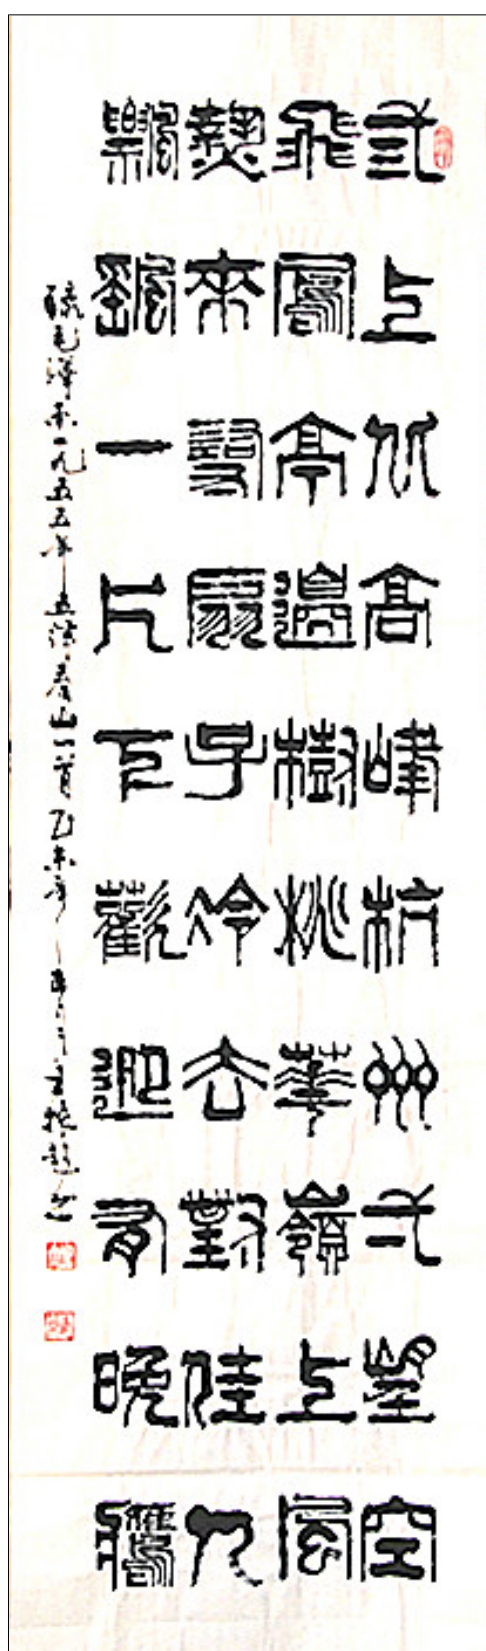 弎上北高峰杭州弌望空
飛鳳亭邊樹桃華嶺上風
熱來尋扇子冷去對佳人
飄飖一片下歡迎有晚鷹
録毛泽东一九五五年五律看山一首乙未年